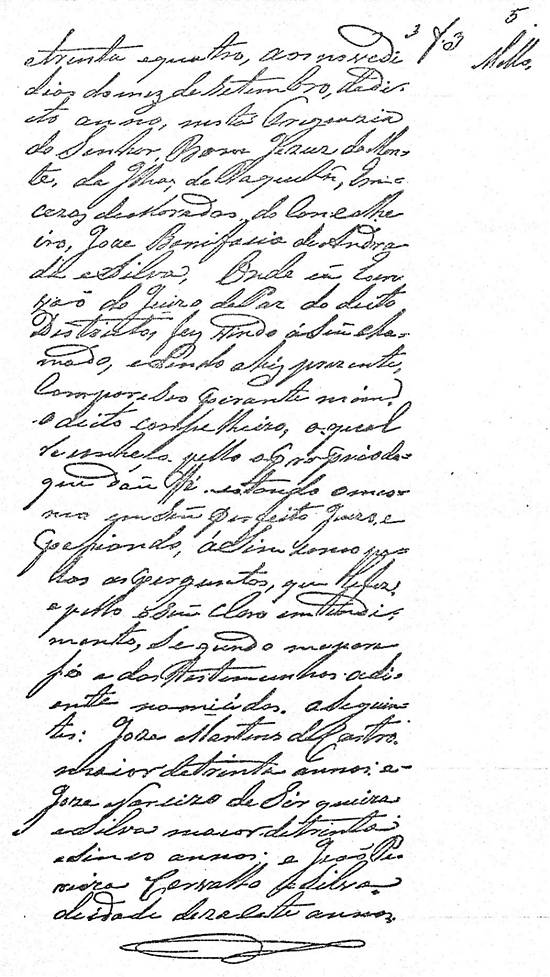 5.
3 f. 03
Mello,
etrinta equatro, aos nove di
dias do mez de Setembro, do di-
to anno, nesta Freguezia
do Senhor, Bom Jezus do Mon-
te, da Ilha, de Paquetá, Em ca-
zas de Moradas, do Conselhe
iro, Joze Bonifacio de Andra
da e Silva, Onde eu Escri
vaõ do Juizo de Paz do dicto
Districto, fuy vindo á Seu cha-
mado, e Sendo ahi, prezente,
Compareseo perante mim,
o dicto comselheiro, o qual
reconheço pello o proprio de-
que dou fé. estando o mes-
mo em Seu perfeito Juizo, e
á Sim como pe-
las as perguntas, que lhe fiz,
e pello o Seu claro emtendi-
mento, Segundo me pare
ceo e das Testemunhas adi-
ente nomiádas. a Seguin-
tes: Joze Martins de Castro.
maior de trinta annos: e-
Joze Narcizo de Sirqueira
e Silva maior de trinta
e Sinco annos; e Joaõ Pe-
reira Carvalho e Silva
de idade dezasete annos,